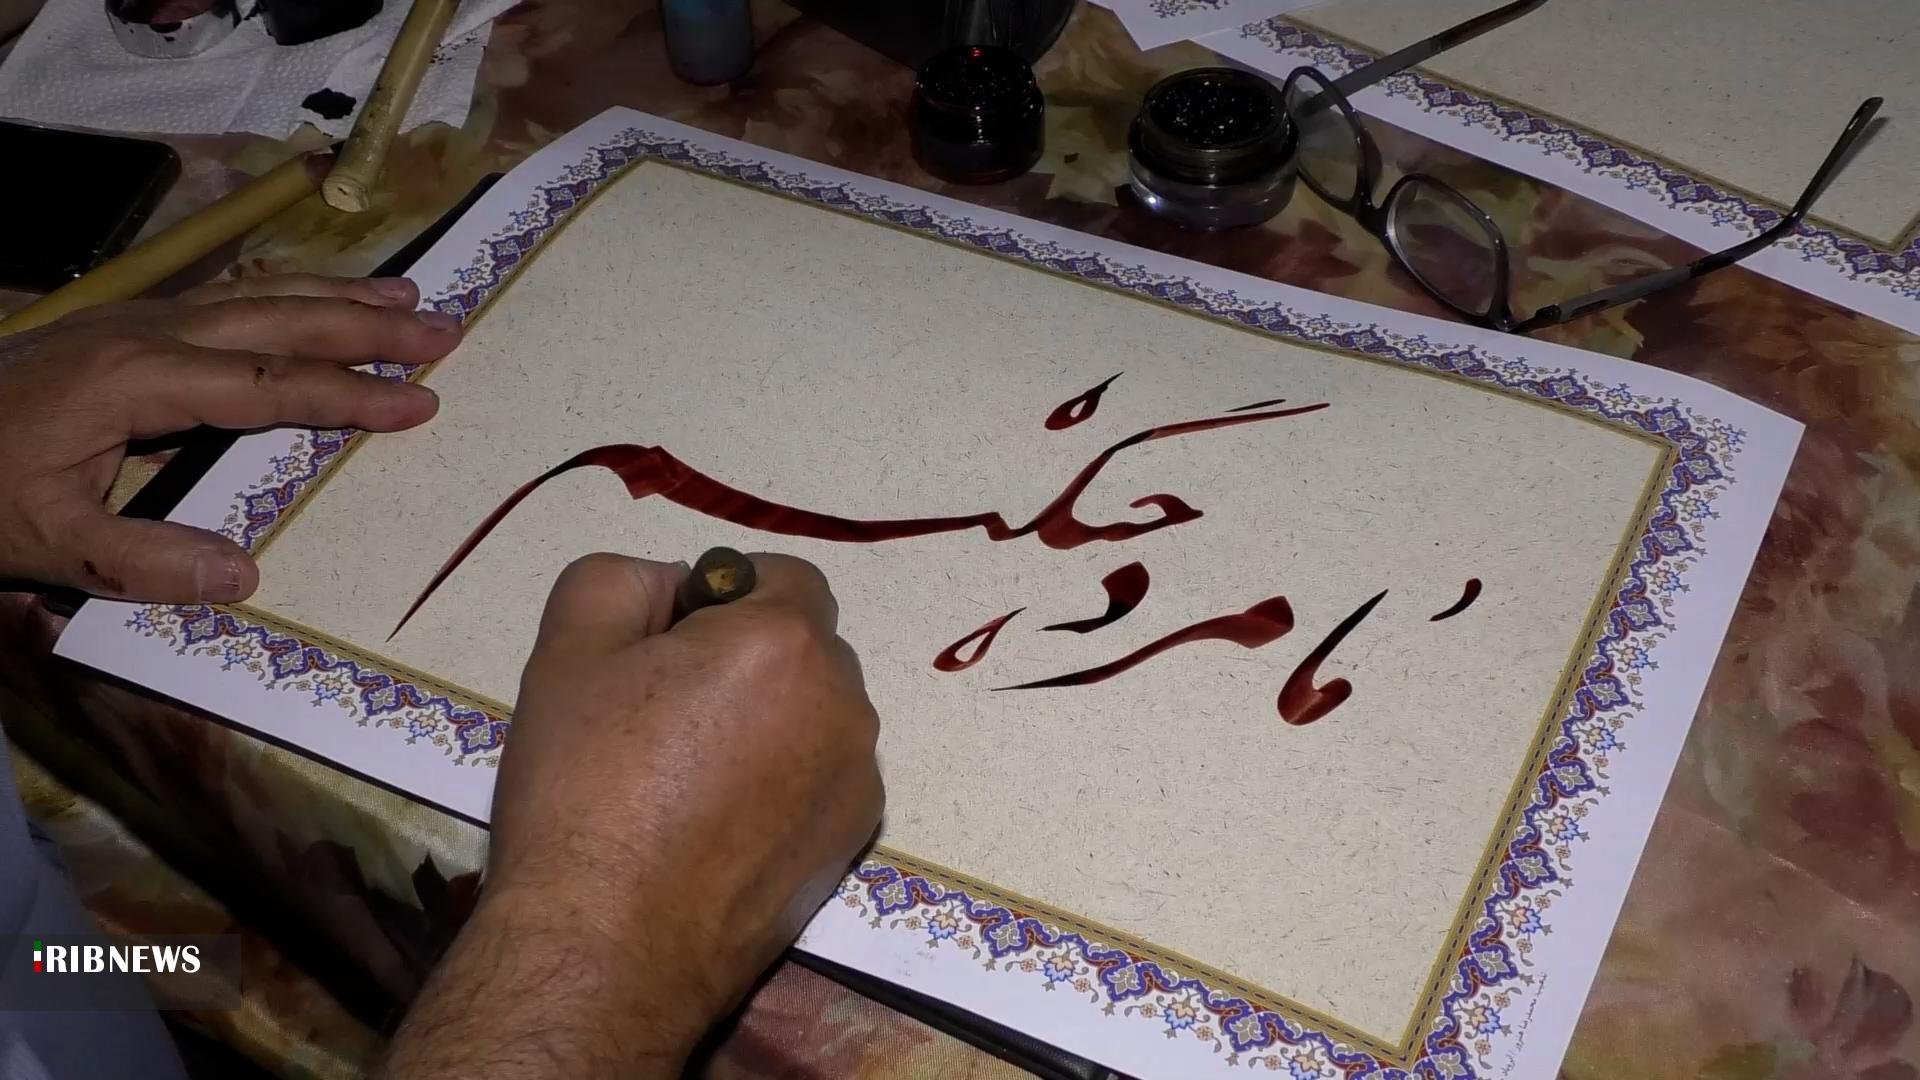 ما مرد
جنگیم
IRIBNEWS